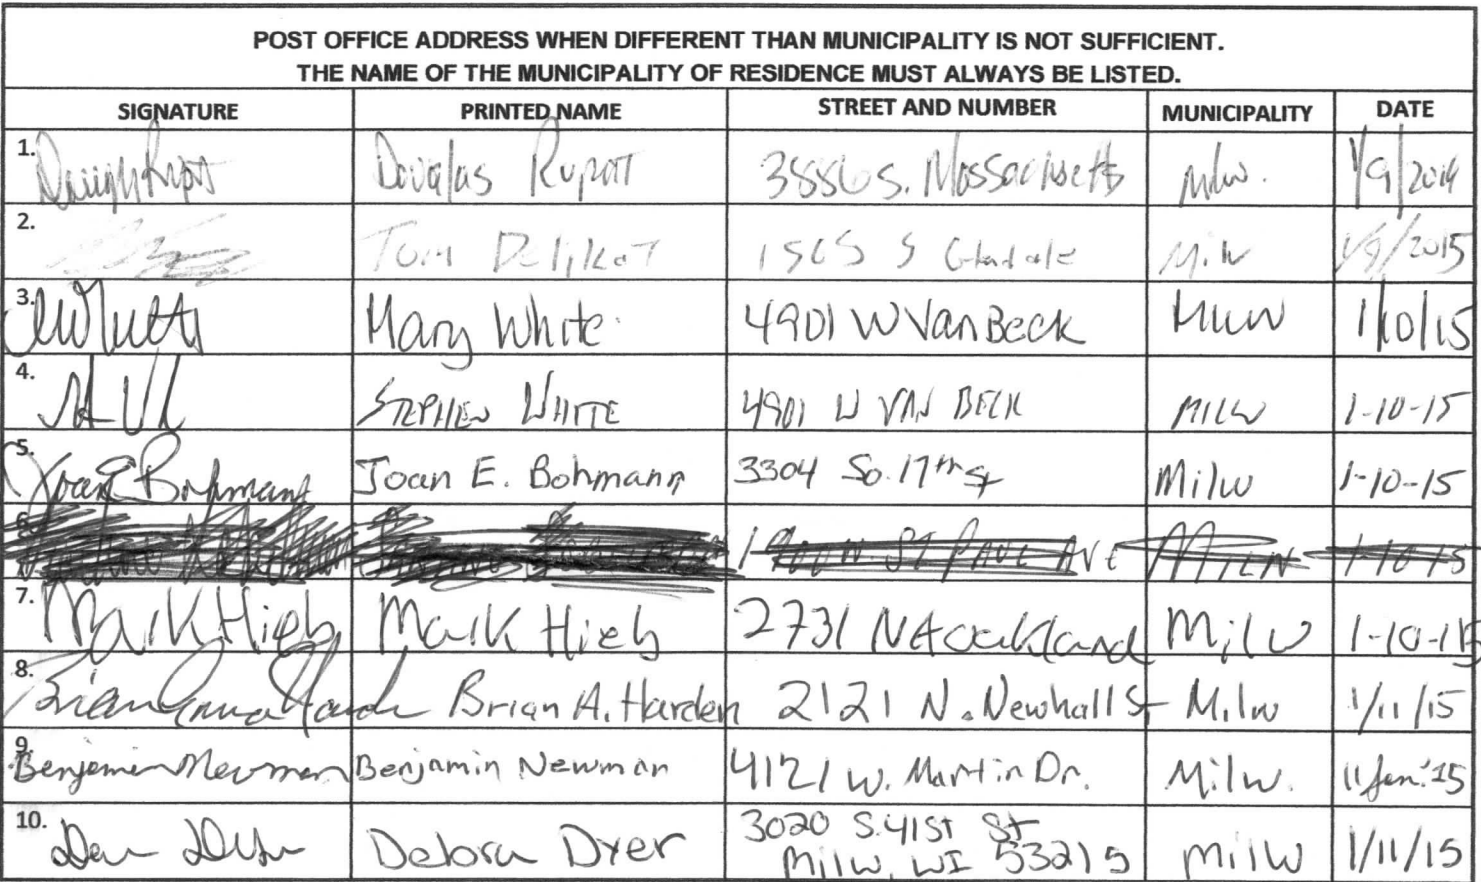 POST OFFICE ADDRESS WHEN DIFFERENT THAN MUNICIPALITY IS NOT SUFFICIENT.
THE NAME OF THE MUNICIPALITY OF RESIDENCE MUST ALWAYS BE LISTED.
SIGNATURE PRINTED NAME STREET AND NUMBER MUNICIPALITY DATE
1. Douglas S. Massachusetts Milw. 1/9/2014
2. Tom S Milw 1/9/2015
3. Mary White 4901 W Van Beck MILW 1/10/15
4. STEPHEN WHITE 4901 W VAN BECK MILW 1-10-15
5. Joan E Bohmann Joan E. Bohmann 3304 So. 17th St Milw 1-10-15
6. ST PAUL AVE MILW 1-10-15
7. Mark Hieb Mark Hieb 2731 N Oakland Milw 1-10-15
8. Brian Harden Brian A. Harden 2121 N. Newhall St Milw 1/11/15
9. Benjamin Newman Benjamin Newman 4121 W. Martin Dr. Milw. 11 Jan. '15
10. Debora Dyer 3020 S. 41st St Milw 1/11/15
Milw, WI 53215